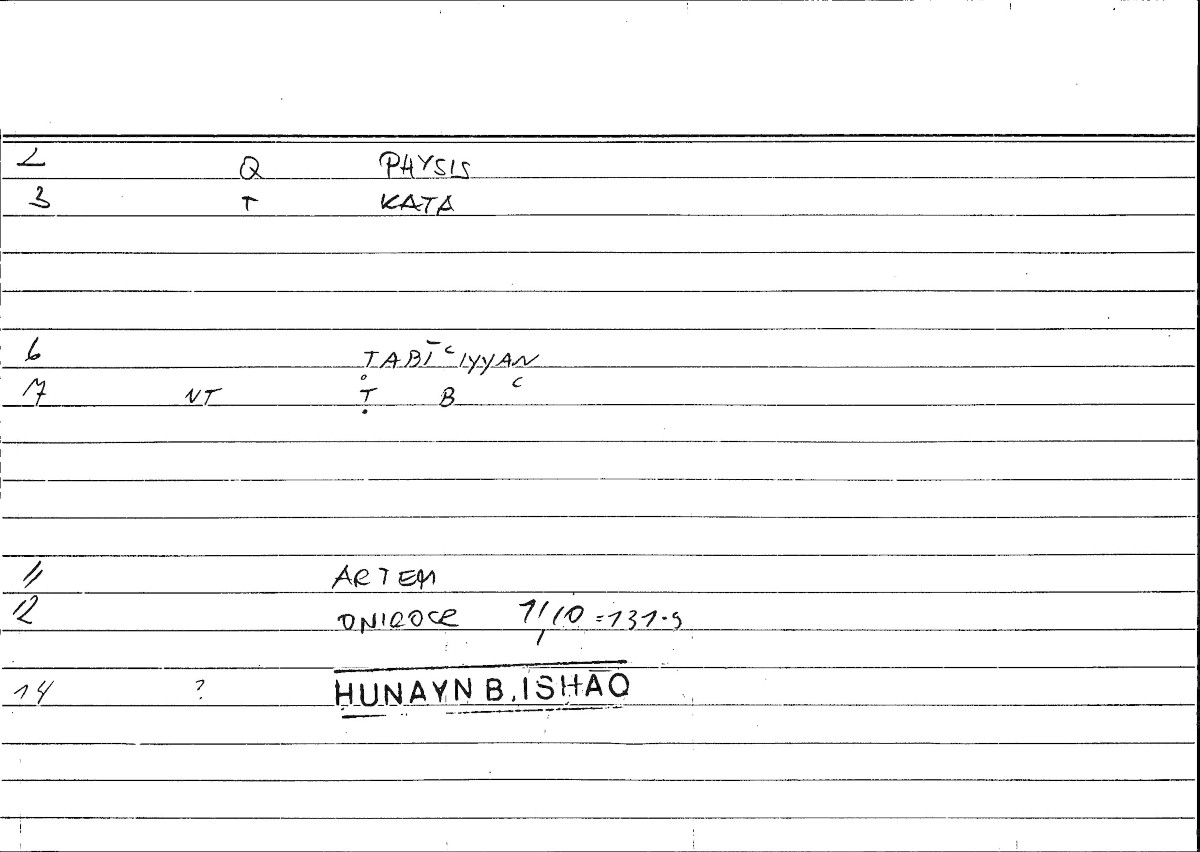 2 Q PHYSIS
3 T KATA
6 ṬABĪʿIYYAN
7 NT Ṭ B ʿ
11 ARTEM
12 ONIROCR 1/10 = 131.9
14 ? HUNAYN B. ISHĀQ